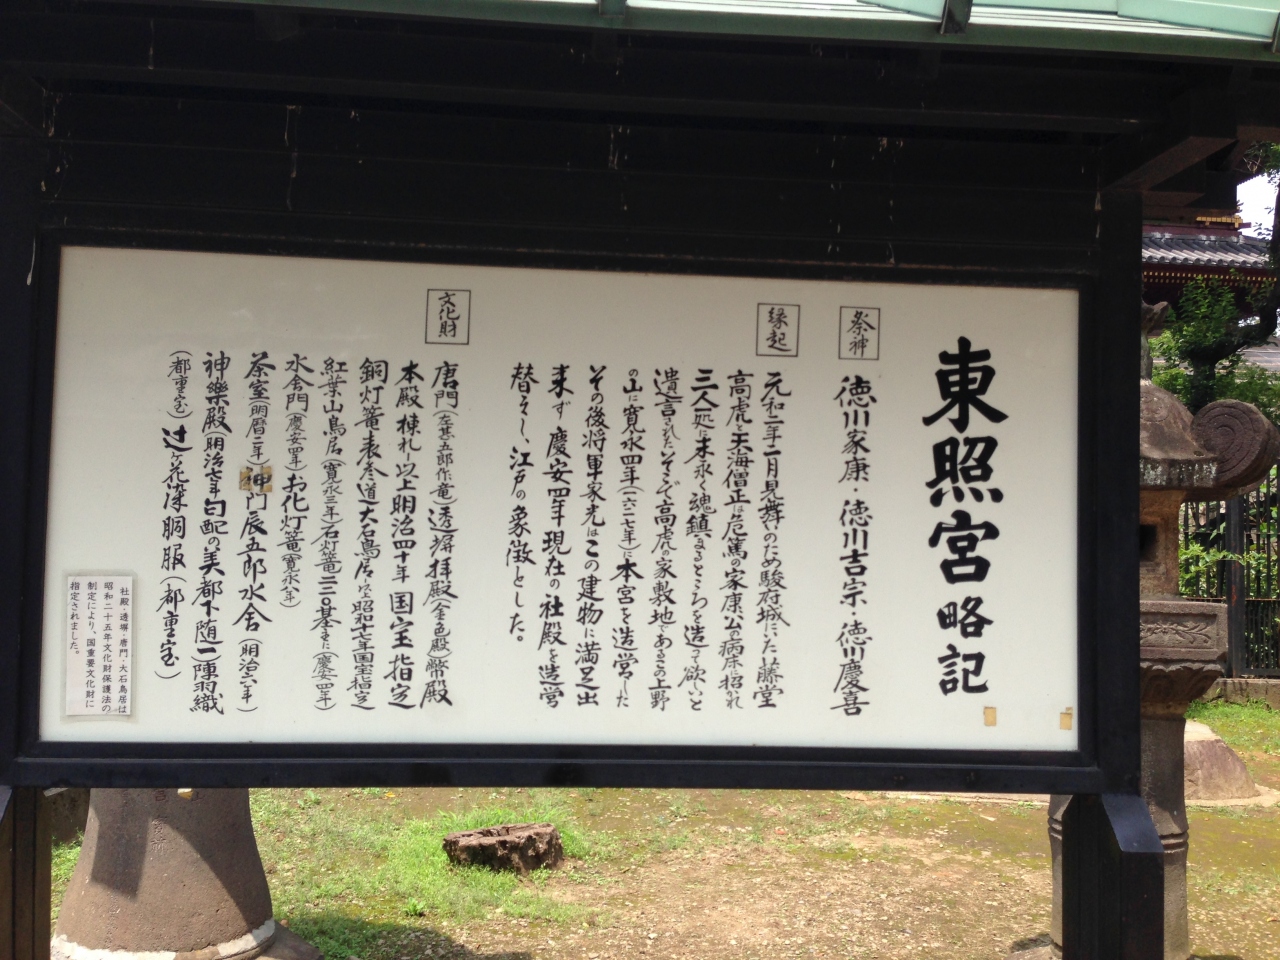 東照宮略記
祭神
徳川家康・徳川吉宗・徳川慶喜
縁起
元和二年二月見舞いのため駿府城にいた藤堂
高虎と天海僧正は危篤の家康公の病床に招かれ
三人一処に末永く魂鎮まるところを造って欲しいと
遺言されたいそこで高虎の家敷地であるこの上野
の山に寛永四年(一六二七年)に本宮を造営した
その後将軍家光はこの建物に満足出
来ず慶安四年現在の社殿を造営
替えし、江戸の象徴とした。
文化財
唐門(左甚五郎作竜)透塀拝殿(金色殿)幣殿
本殿棟札-以上明治四十年国宝指定
銅灯篭表参道大石鳥居以上昭和十七年国宝指定
紅葉山鳥居(寛永三年)石灯篭二二〇基主に(慶安四年)
水舎門(慶安四年)お化灯篭(寛永八年)
茶室(明暦二年)神門辰五郎水舎(明治六年)
神樂殿(明治七年)勾配の美都下随一)陳羽織
(都重宝)辻ヶ花染胴服(都重宝)
社殿・透塀・唐門・大石鳥居は
昭和二十五年文化財保護法の
制定により、国重要文化財に
指定されました。